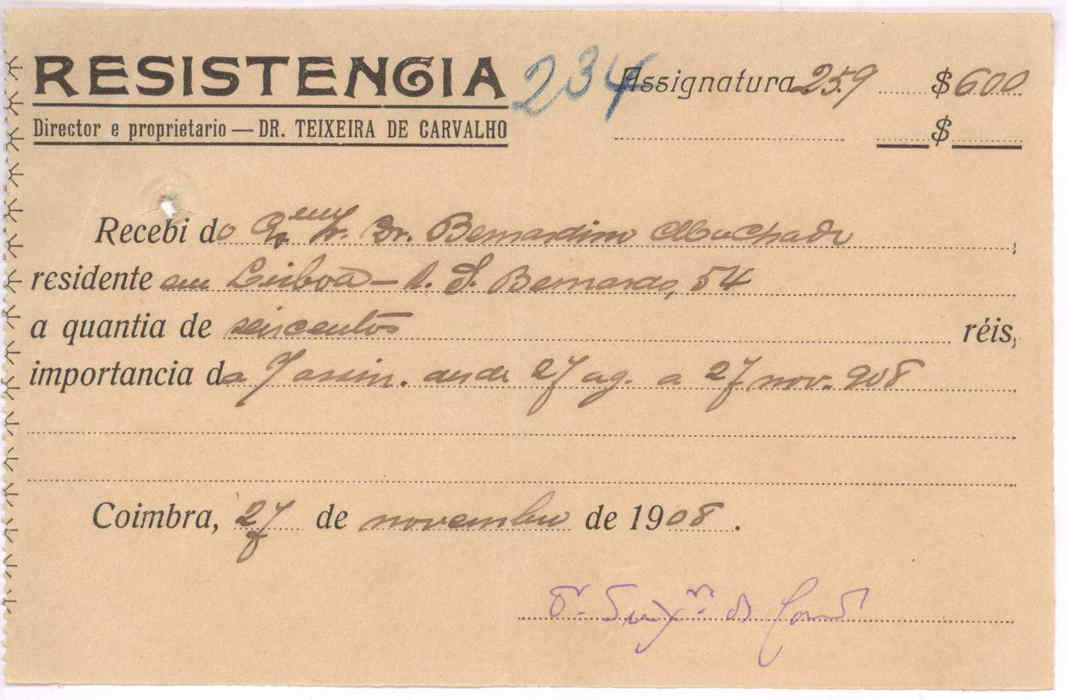 RESISTENCIA 234 Assignatura 259 $600
Director e proprietario — DR. TEIXEIRA DE CARVALHO $
Recebi do Exmo Sr. Dr. Bernardino Machado,
residente em Lisboa — R. S. Bernardo, 54
a quantia de seiscentos réis,
importancia da assin. desde 27 ag. a 27 nov. 908
Coimbra, 27 de novembro de 1908.